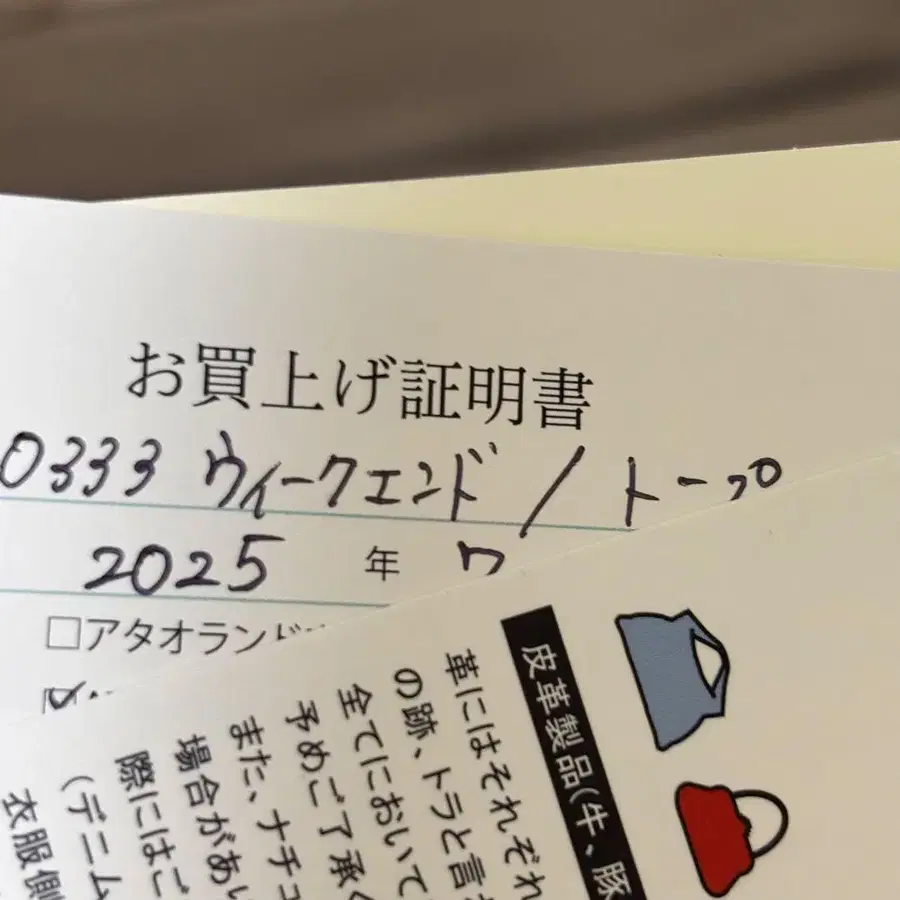 お買上げ証明書
0333 ウィークエンド / トープ
2025 年 7
□アタオランド
皮革製品(牛、豚
革にはそれぞれ
の跡、トラと言
全てにおいて
予めご了承く
また、ナチュ
場合があい
際にはご
(デニム
衣服側